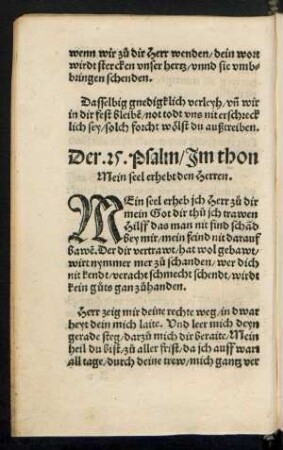 wenn wir zů dir Herr wenden/dein wort
wirdt stercken vnser hertz/vnnd sie vmb-
bringen schenden.
Dasselbig gnedigklich verleyh/vñ wir
in dir fest bleibē/not todt vns nit erschreck
lich sey/solch forcht wölst du außtreiben.
Der. 25. Psalm/Im thon
Mein seel erhebt den Herren.
MEin seel erheb jch Herr zů dir
mein Got dir thů jch trawen
Hilff das man nit find schād
bey mir/mein feind nit darauf
bawē. Der dir vertrawt/hat wol gebawt/
wirt nymmer mer zů schanden/wer dich
nit kendt/veracht schmecht schendt/wirdt
kein gůts gan zůhanden.
Herr zeig mir deine rechte weg/in dwar
heyt dein mich laite. Vnd leer mich deyn
gerade steg/darzů mich dir beraite/Mein
heil du bist/zů aller frist/da jch auff wart
all tage/durch deine trew/mich gantz ver